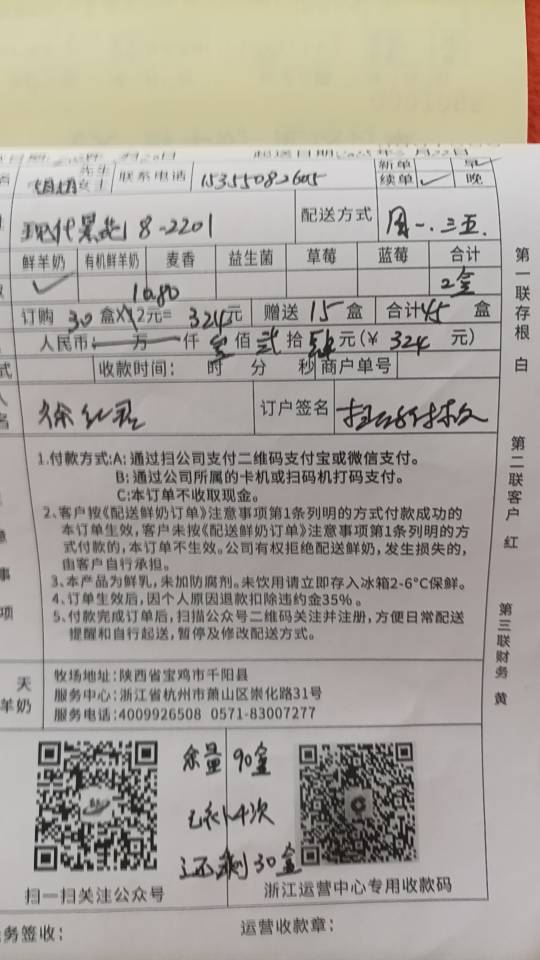 起送日期:
先生
女士
联系电话
15355082605
新单
续单✓
晚
现代景苑 8-2201
配送方式
周一.三五.
鲜羊奶 有机鲜羊奶 麦香 益生菌 草莓 蓝莓 合计
✓
2盒
10.80
订购 30 盒X12元= 324元 赠送 15 盒 合计45 盒
人民币: 万 仟 叁 佰 贰 拾 肆 元(¥ 324 元)
收款时间: 时 分 秒 商户单号
订户签名
1.付款方式:A:通过扫公司支付二维码支付宝或微信支付。
B:通过公司所属的卡机或扫码机打码支付。
C:本订单不收取现金。
2、客户按《配送鲜奶订单》注意事项第1条列明的方式付款成功的
本订单生效,客户未按《配送鲜奶订单》注意事项第1条列明的方
式付款的,本订单不生效。公司有权拒绝配送鲜奶,发生损失的,
由客户自行承担。
3、本产品为鲜乳,未加防腐剂。未饮用请立即存入冰箱2-6°C保鲜。
4、订单生效后,因个人原因退款扣除违约金35%。
5、付款完成订单后,扫描公众号二维码关注并注册,方便日常配送
提醒和自行起送,暂停及修改配送方式。
天
羊奶
牧场地址:陕西省宝鸡市千阳县
服务中心:浙江省杭州市萧山区崇化路31号
服务电话:4009926508 0571-83007277
余量 90盒
4次
还剩 30盒
扫一扫关注公众号
浙江运营中心专用收款码
务签收:
运营收款章:
第一联存根 白
第二联客户 红
第三联财务 黄